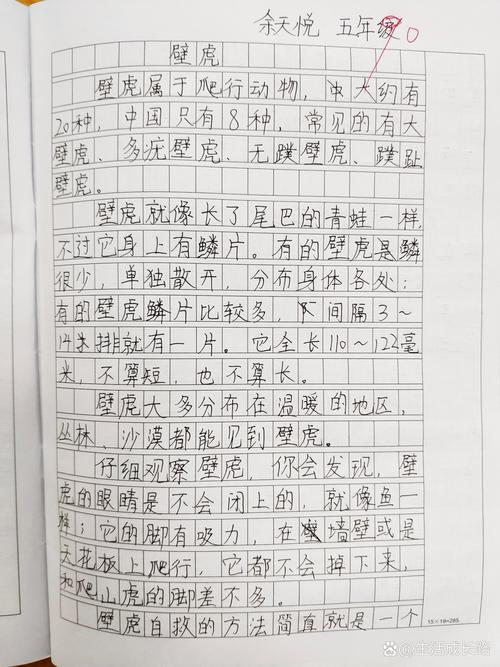 余天悦 五年级
壁虎
壁虎属于爬行动物，中大约有
20种，中国只有8种，常见的有大
壁虎、多疣壁虎、无蹼壁虎、蹼趾
壁虎。
壁虎就像长了尾巴的青蛙一样，
不过它身上有鳞片。有的壁虎是鳞
很少，单独散开，分布身体各处；
有的壁虎鳞片比较多，间隔3～
14米排就有一片。它全长110～122毫
米，不算短，也不算长。
壁虎大多分布在温暖的地区，
丛林、沙漠都能见到壁虎。
仔细观察壁虎，你会发现，壁
虎的眼睛是不会闭上的，就像鱼一
样；它的脚有吸力，在墙壁或是
天花板上爬行，它都不会掉下来，
和爬山虎的脚差不多。
壁虎自救的方法简直就是一个
15×19=285
@生活成长路